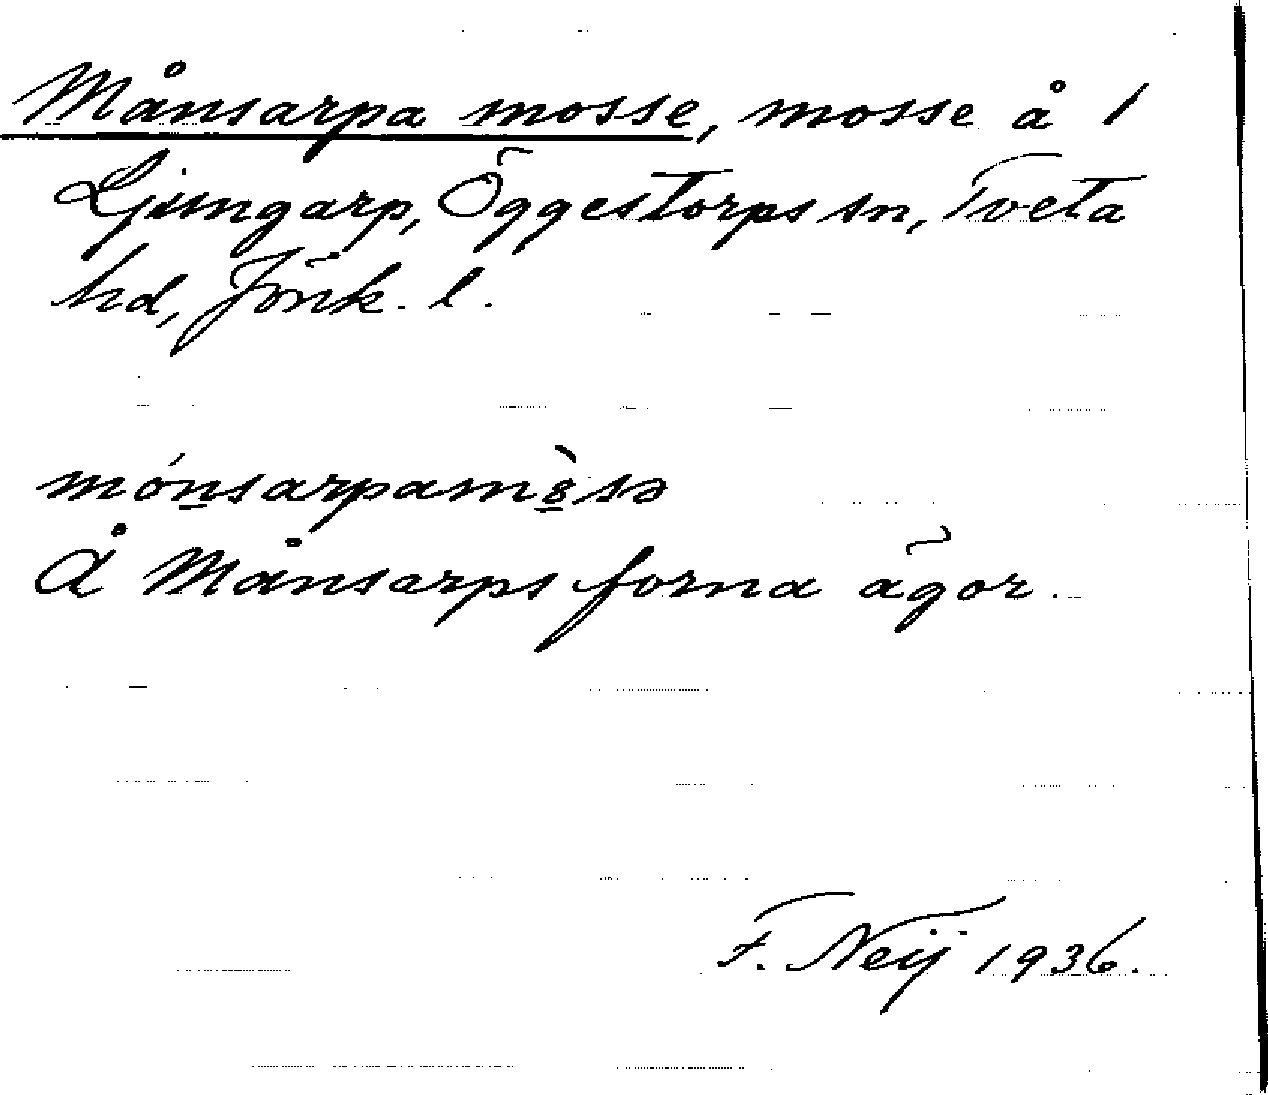 Månsarpa mosse, mosse å 1
Ljungarp, Öggestorps sn, Tveta
hd, Jönk. l.
mónsarpamòsə
Å Månsarps forna ägor.
F. Neij 1936.